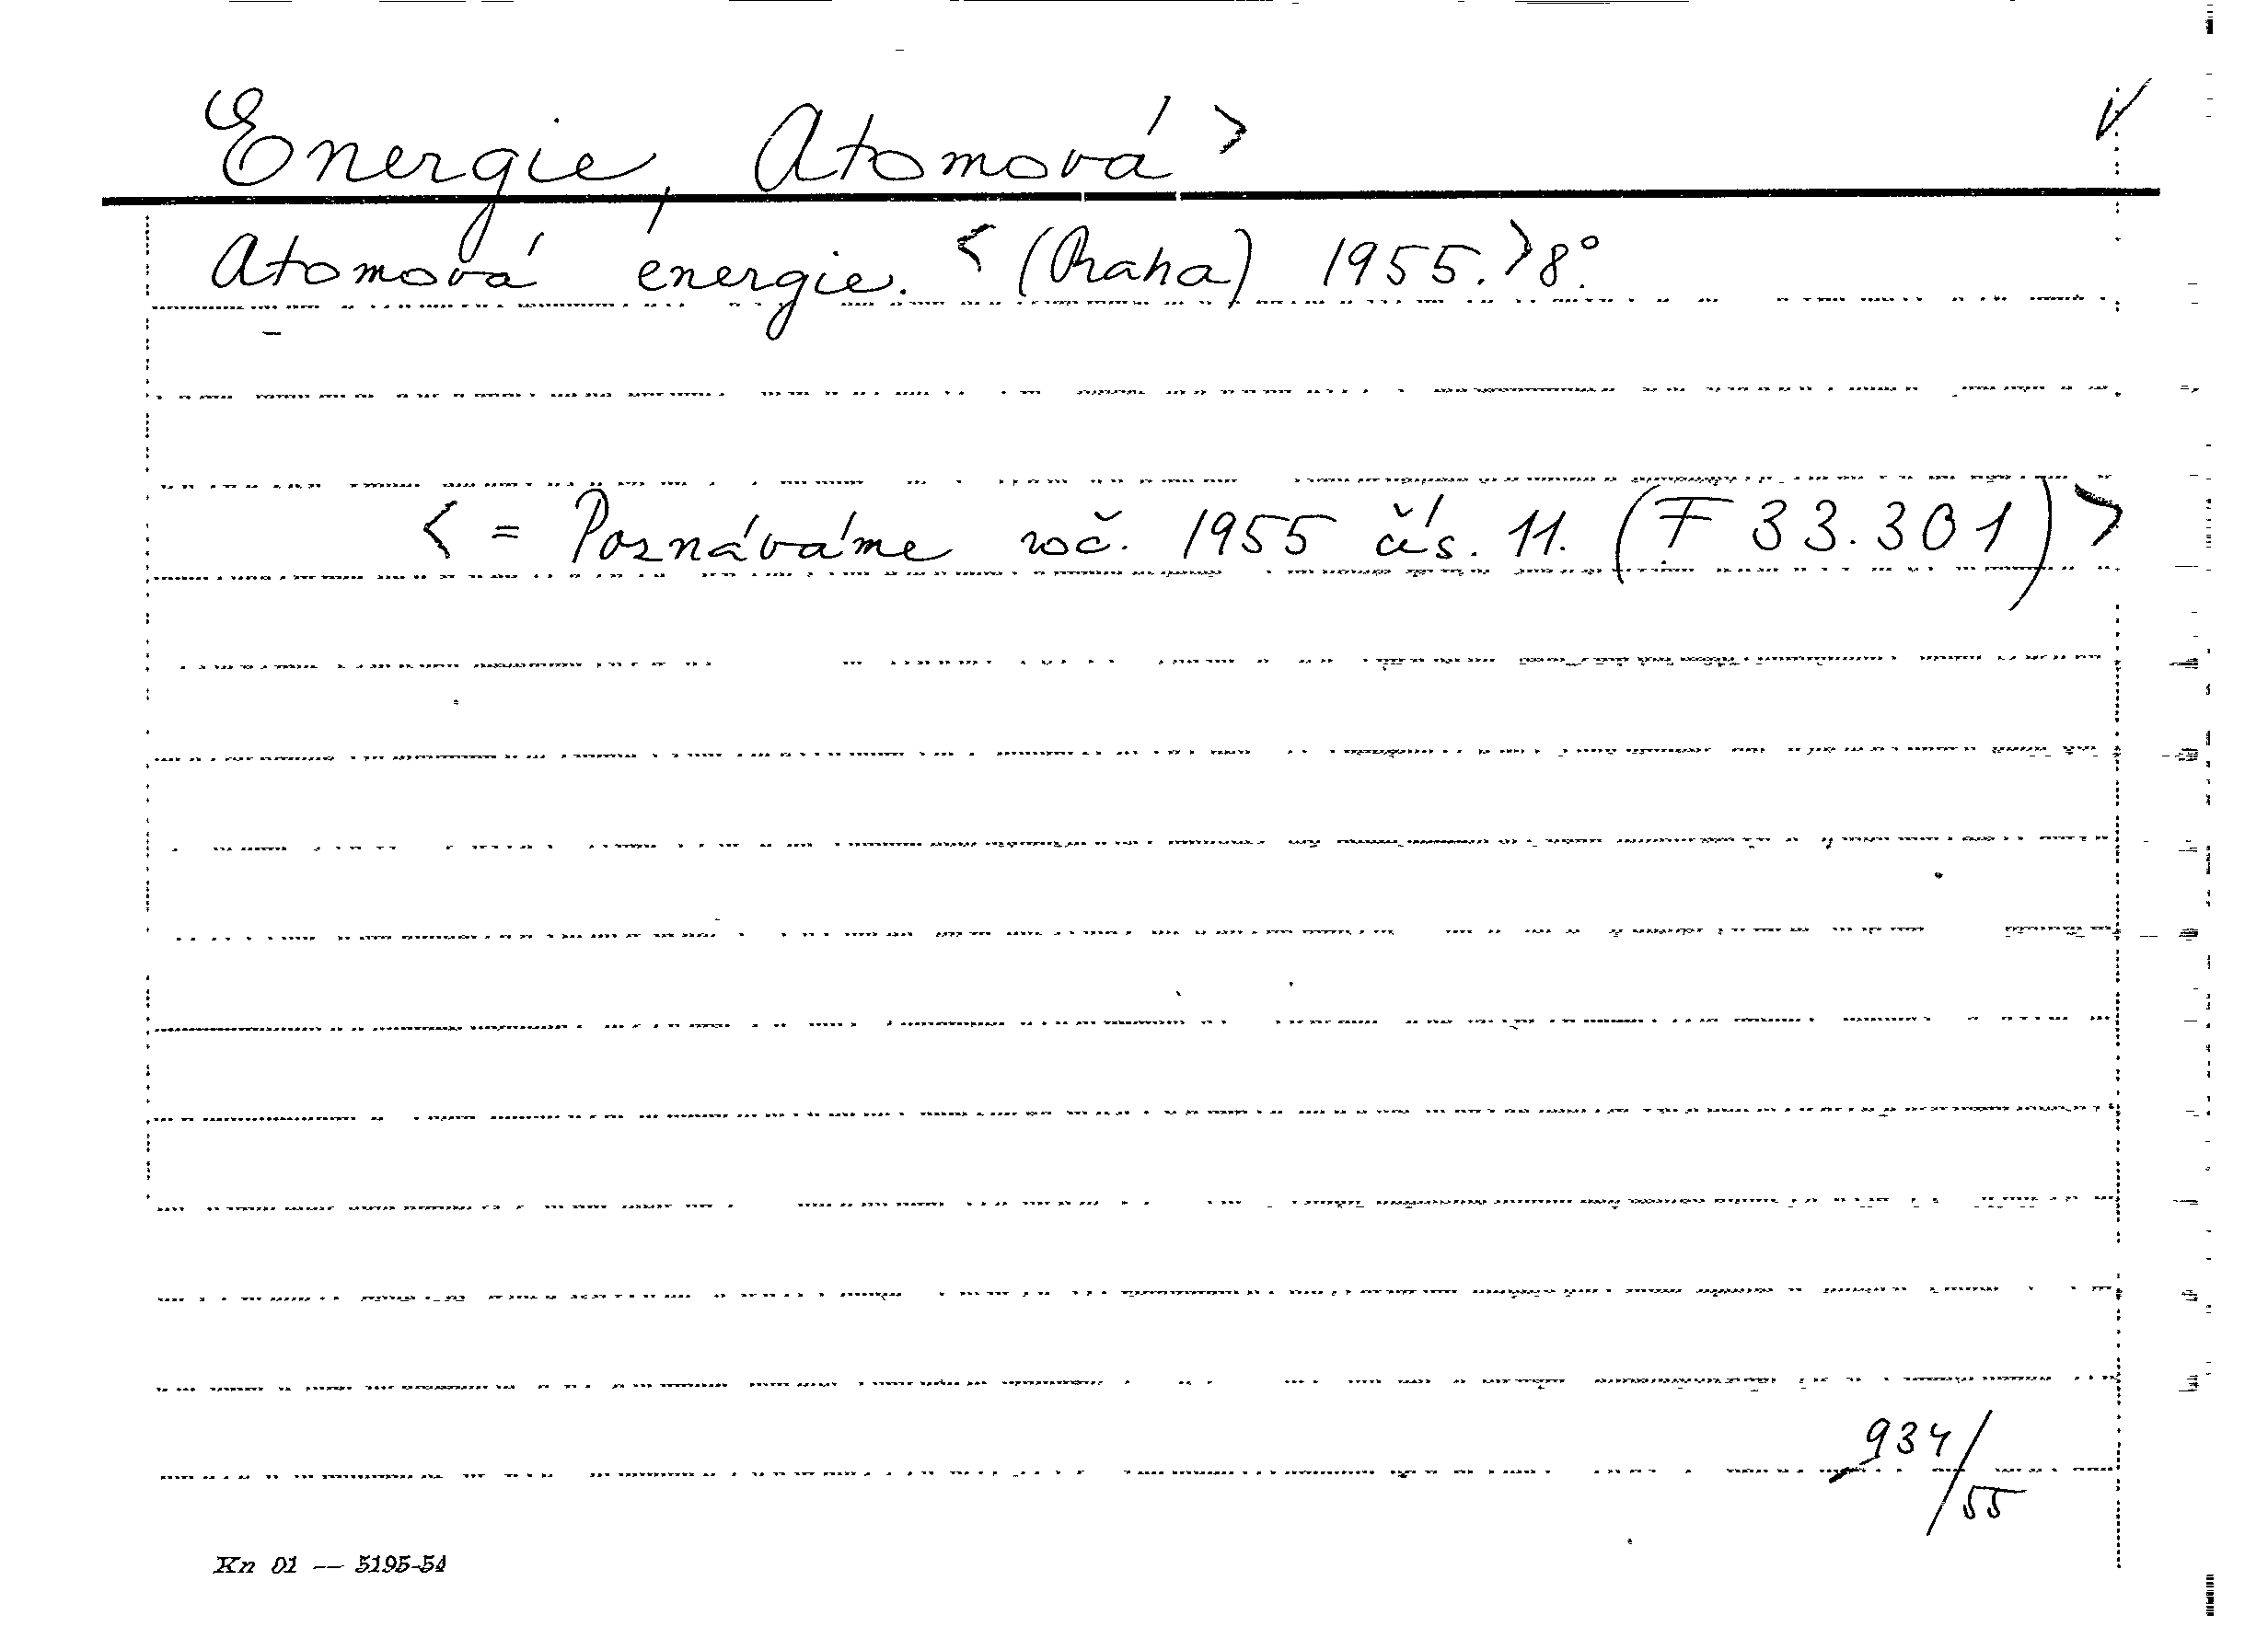 Energie, Atomová >
Atomová energie. < (Praha) 1955. > 8°.
< = Poznáváme roč. 1955 čís. 11. (F 33.301) >
934/55
Kn 01 — 5195-54